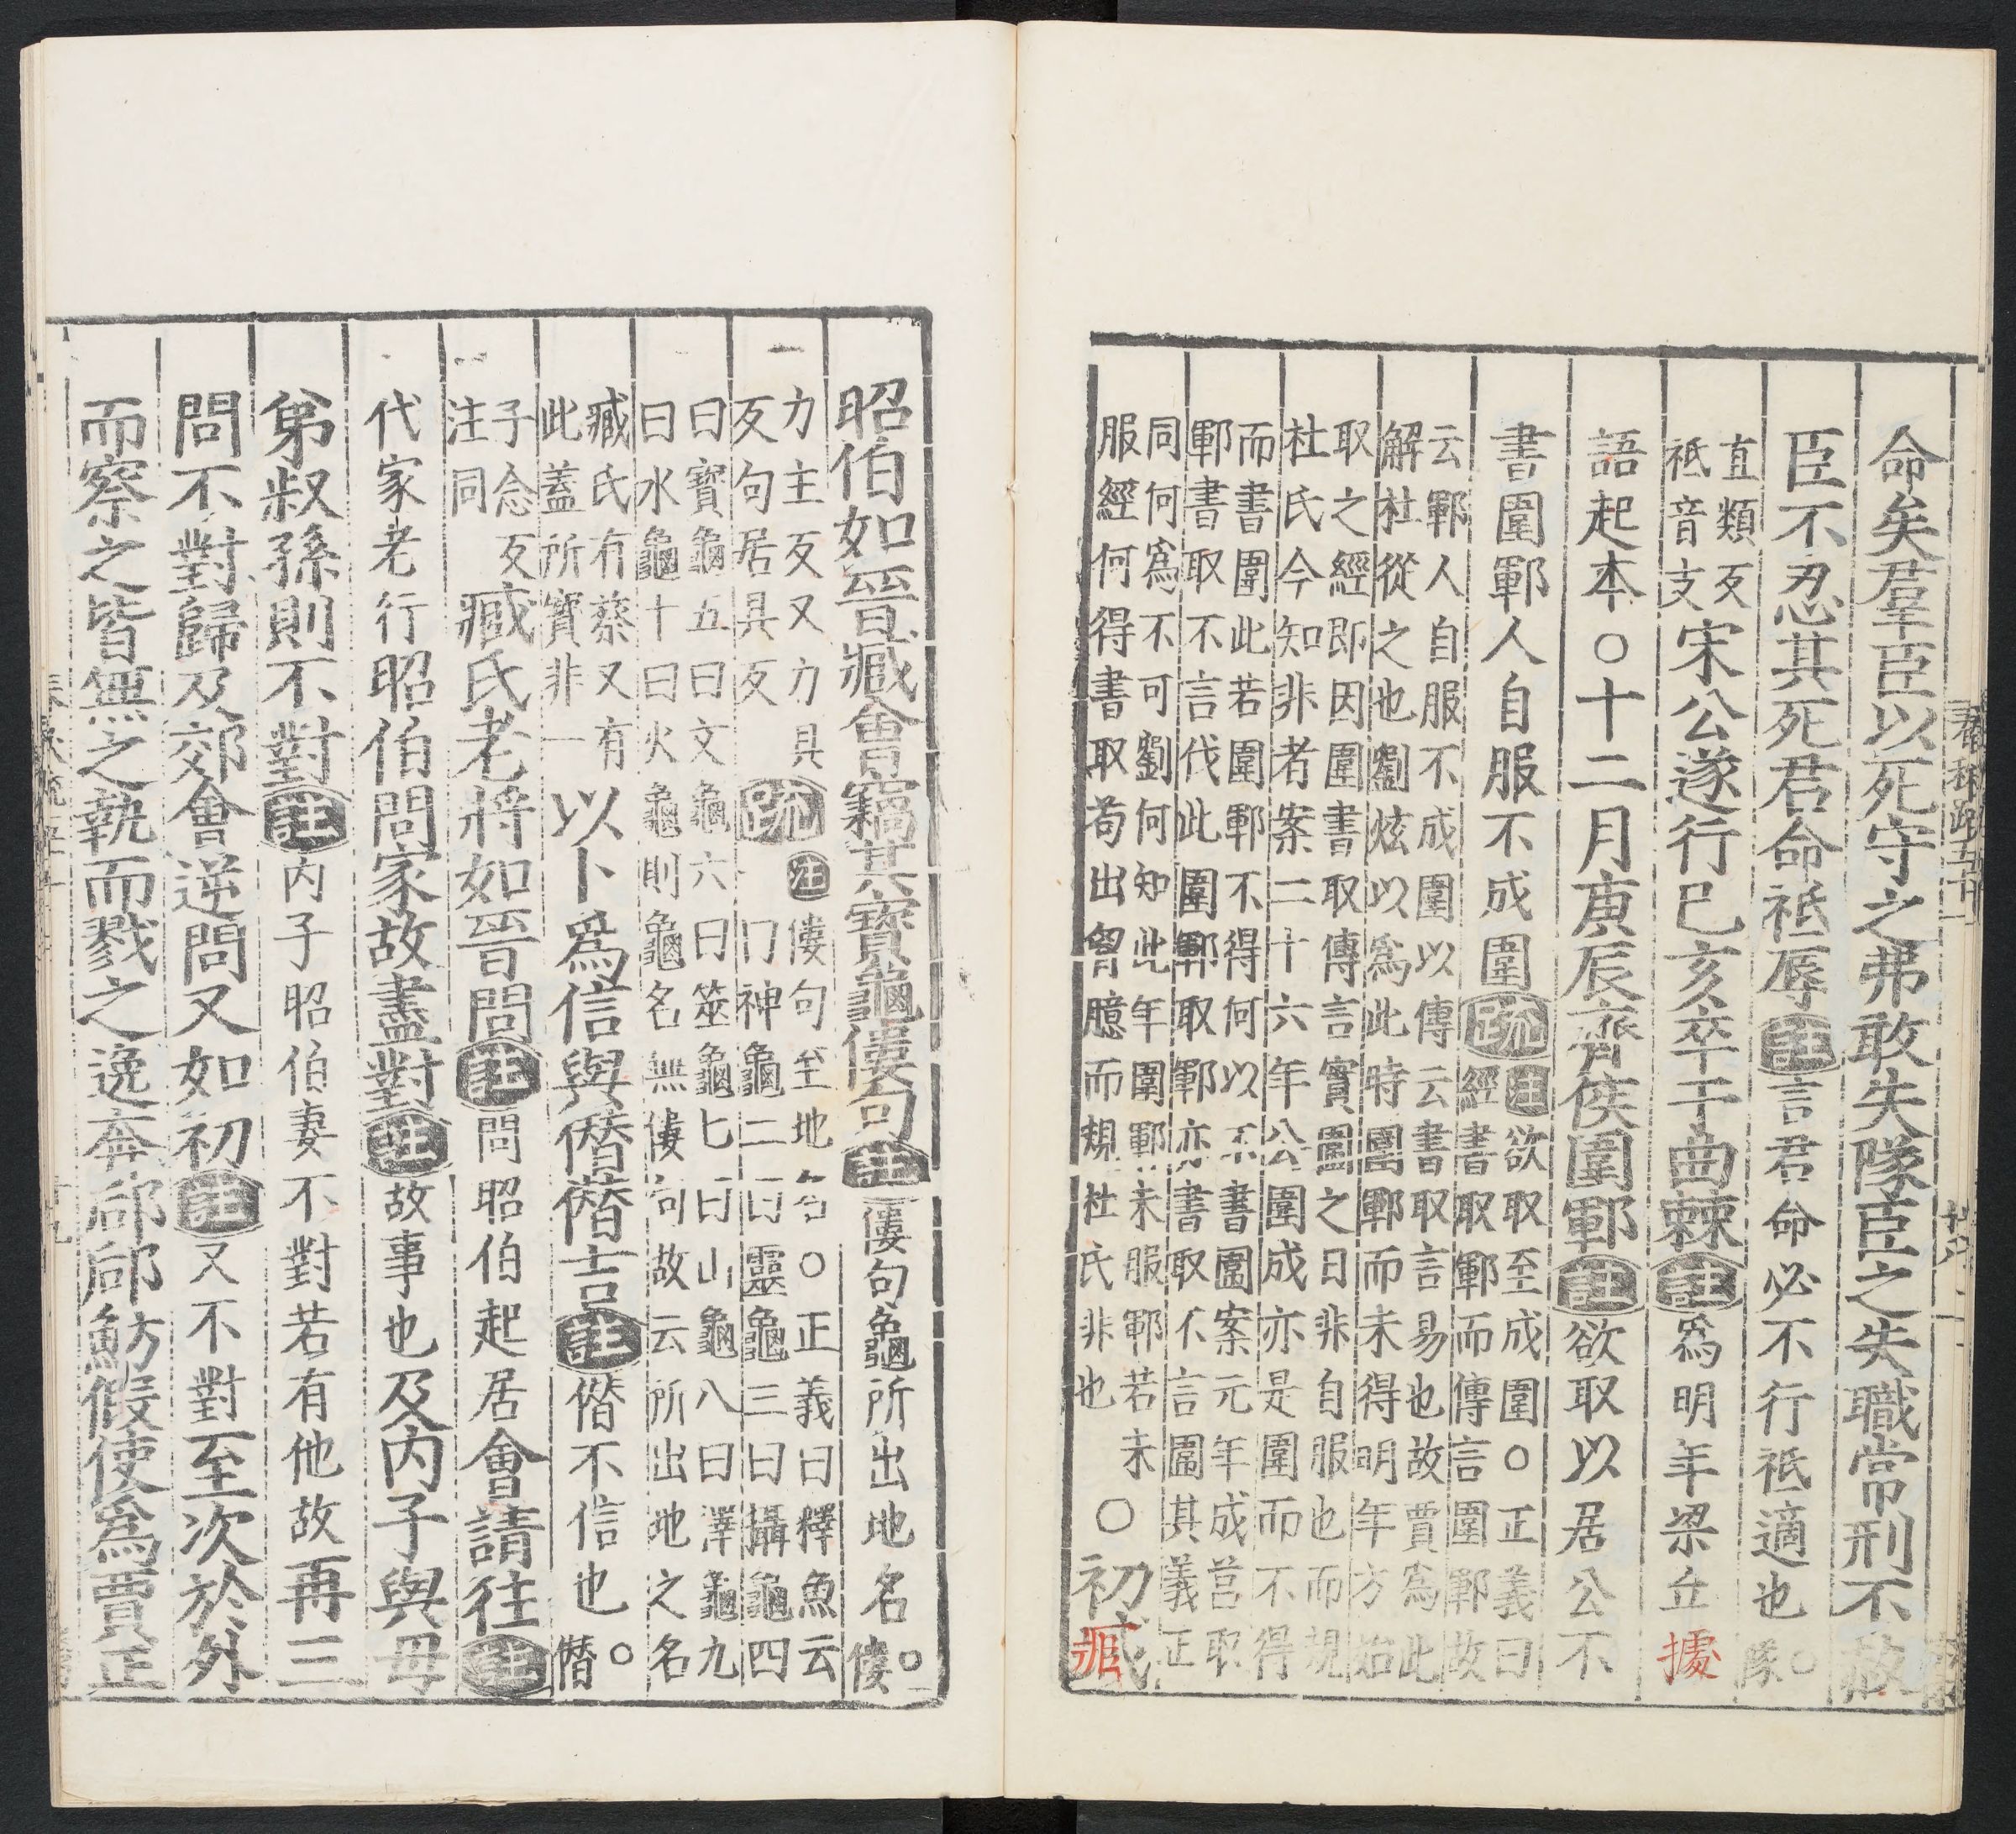 命矣羣臣以死守之弗敢失隊臣之失職常刑不赦
臣不忍其死君命祗辱註言君命必不行祗適也○隊
直類反
祗音支
宋公遂行已亥卒于曲棘註爲明年梁丘據
語起本○十二月庚辰齊侯圍鄆註欲取以居公不
書圍鄆人自服不成圍疏
注欲取至成圍○正義曰
經書取鄆而傳言圍鄆故
云鄆人自服不成圍以傳云書取言易也故賈爲此
解杜從之也劉炫以爲此時圍鄆而未得明年方始
取之經即因圍書取傳言實圍之日非自服也而規
杜氏今知非者案二十六年公圍成亦是圍而不得
而書圍此若圍鄆不得何以不書圍案元年成莒取
鄆書取不言伐此圍鄆取鄆亦書取不言圍其義正
同何爲不可劉何知此年圍鄆未服鄆若未
服經何得書取苟出胷臆而規杜氏非也
○初臧
昭伯如晉臧會竊其寶龜僂句註僂句龜所出地名○僂
力主反又力具
反句居具反
疏
注僂句至地名○正義曰釋魚云
一曰神龜二曰靈龜三曰攝龜四
曰寶龜五曰文龜六曰筮龜七曰山龜八曰澤龜九
曰水龜十曰火龜則龜名無僂句故云所出地之名
臧氏有蔡又有
此蓋所寶非一
以卜爲信與僭僭吉註僭不信也○僭
子念反
注同
臧氏老將如晉問註問昭伯起居會請往註
代家老行昭伯問家故盡對註故事也及內子與母
弟叔孫則不對註內子昭伯妻不對若有他故再三
問不對歸及郊會逆問又如初註又不對至次於外
而察之皆無之執而戮之逸奔郈郈魴假使爲賈正